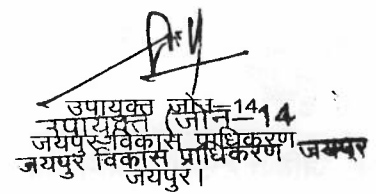 उपायुक्त जोन-14
उपायुक्त (जोन-14
जयपुर विकास प्राधिकरण
जयपुर विकास प्राधिकरण जयपुर
जयपुर।